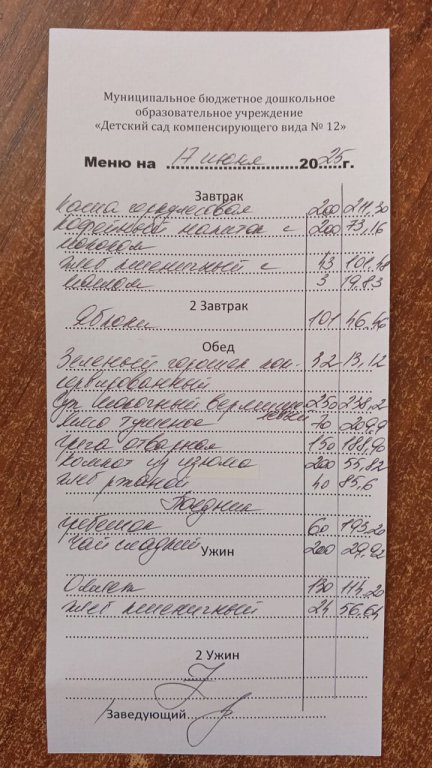 Муниципальное бюджетное дошкольное
образовательное учреждение
«Детский сад компенсирующего вида № 12»
Меню на 17 июня 2025 г.
Завтрак
Каша геркулесовая 200 211,30
Кофейный напиток с 200 73,16
молоком
Хлеб пшеничный с 43 101,48
маслом 3 19,83
2 Завтрак
Яблоки 101 46,46
Обед
Зеленый горошек кон- 32 13,12
сервированный
Суп молочный вермише- 250 238,2
левый
Мясо тушеное 70 209,9
Греча отварная 150 188,90
Компот из изюма 200 55,82
Хлеб ржаной 40 85,6
Полдник
Гребешок 60 193,20
Чай сладкий 200 29,92
Ужин
Омлет 130 114,20
Хлеб пшеничный 24 56,64
2 Ужин
Заведующий